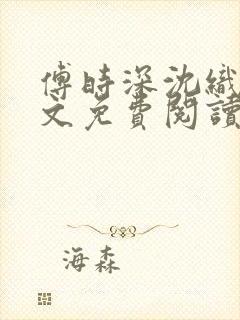 傅時深沈織
文免費閱讀
海森